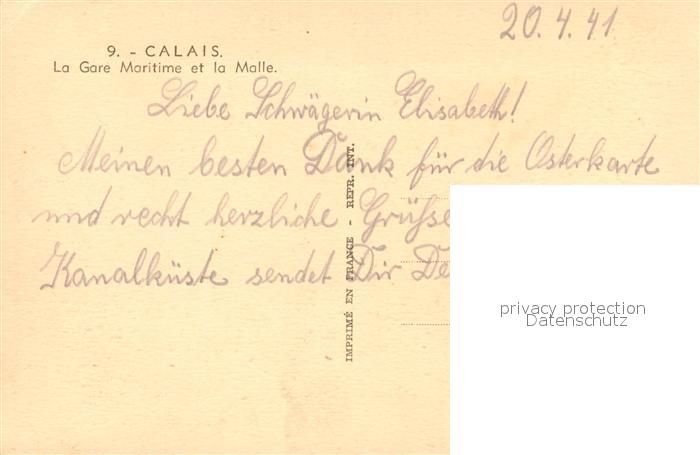 20. 4. 41
9. - CALAIS.
La Gare Maritime et la Malle.
Liebe Schwägerin Elisabeth!
Meinen besten Dank für die Osterkarte
und recht herzliche Grüsse
Kanalküste sendet Dir De
IMPRIMÉ EN FRANCE - REPR. INT.
privacy protection
Datenschutz